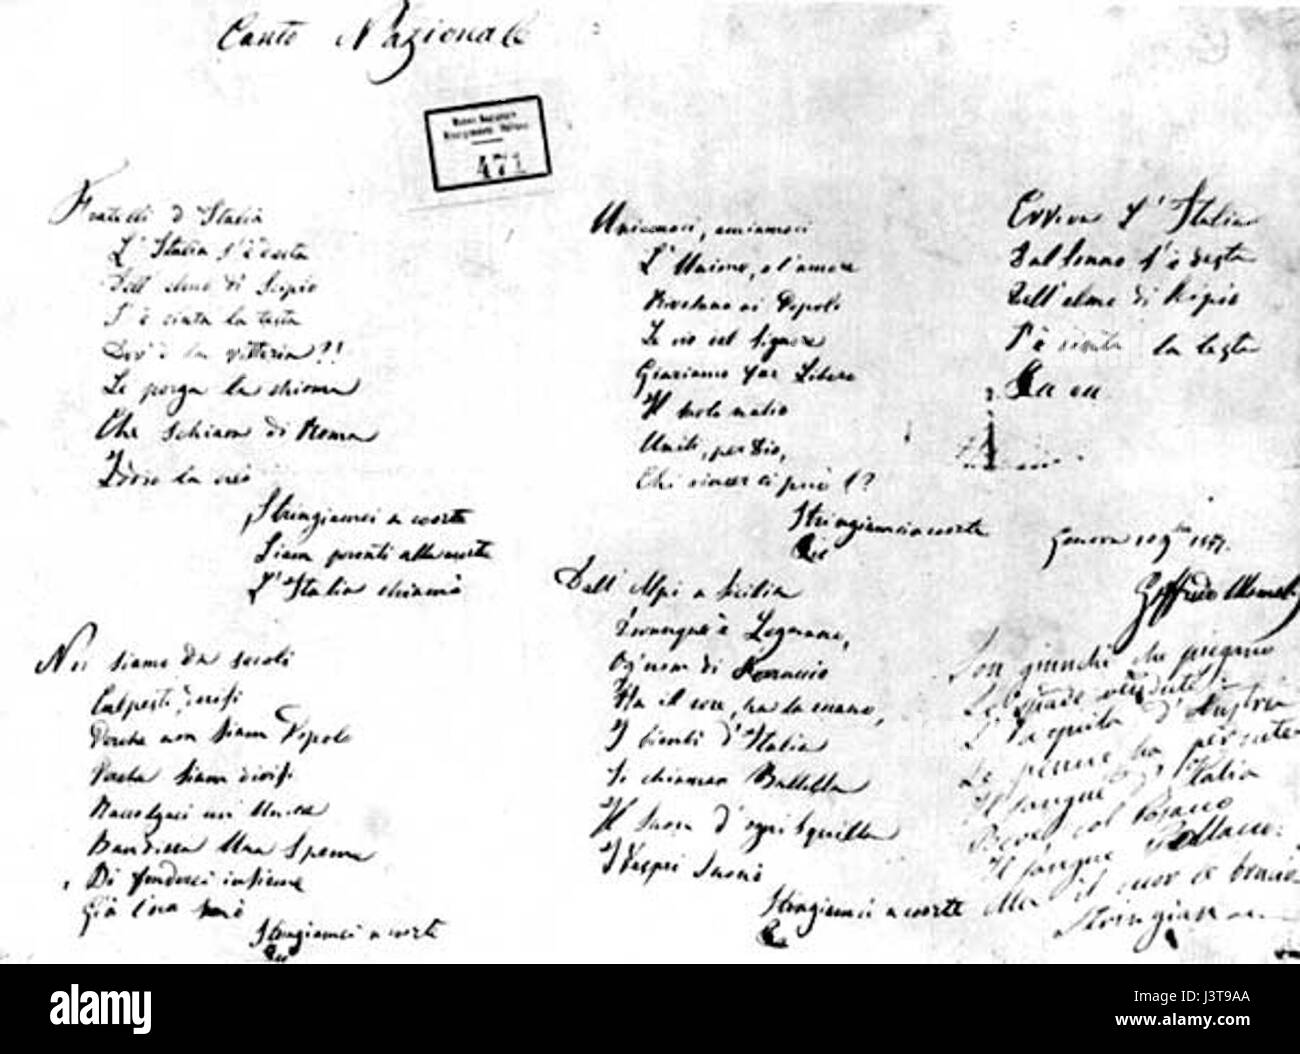 Canto Nazionale
Museo Nazionale
Risorgimento Italiano
471
Fratelli d'Italia
L'Italia s'è desta
Dell'elmo di Scipio
S'è cinta la testa
Dov'è la vittoria?!
Le porga la chioma
Che schiava di Roma
Iddio la creò
Stringiamci a coorte
Siam pronti alla morte
L'Italia chiamò
Noi siamo da secoli
Calpesti, derisi
Perché non siam Popolo
Perché siam divisi
Raccolgaci un'Unica
Bandiera Una Speme
Di fonderci insieme
Già l'ora suonò
Stringiamci a coorte
Uniamoci, amiamoci
L'Unione, e l'amore
Rivelano ai Popoli
Le vie del Signore
Giuriamo far Libero
Il suolo natio
Uniti, per Dio,
Chi vincer ci può?
Stringiamci a coorte
Dall'Alpi a Sicilia
Dovunque è Legnano,
Ogn'uom di Ferruccio
Ha il core, ha la mano,
I bimbi d'Italia
Si chiaman Balilla
Il Suon d'ogni squilla
I Vespri Suonò
Stringiamci a coorte
Evviva l'Italia
Dal sonno s'è desta
Dell'elmo di Scipio
S'è cinta la testa
Genova 10
Goffredo Mameli
Son giunchi che piegano
Le spade vendute:
L'Aquila d'Austria
Le penne ha perdute
Il sangue d'Italia
Bevé, col Cosacco
Il sangue Polacco:
Ma il cuor le bruciò
Stringiam
alamy
www.alamy.com
Image ID: J3T9AA